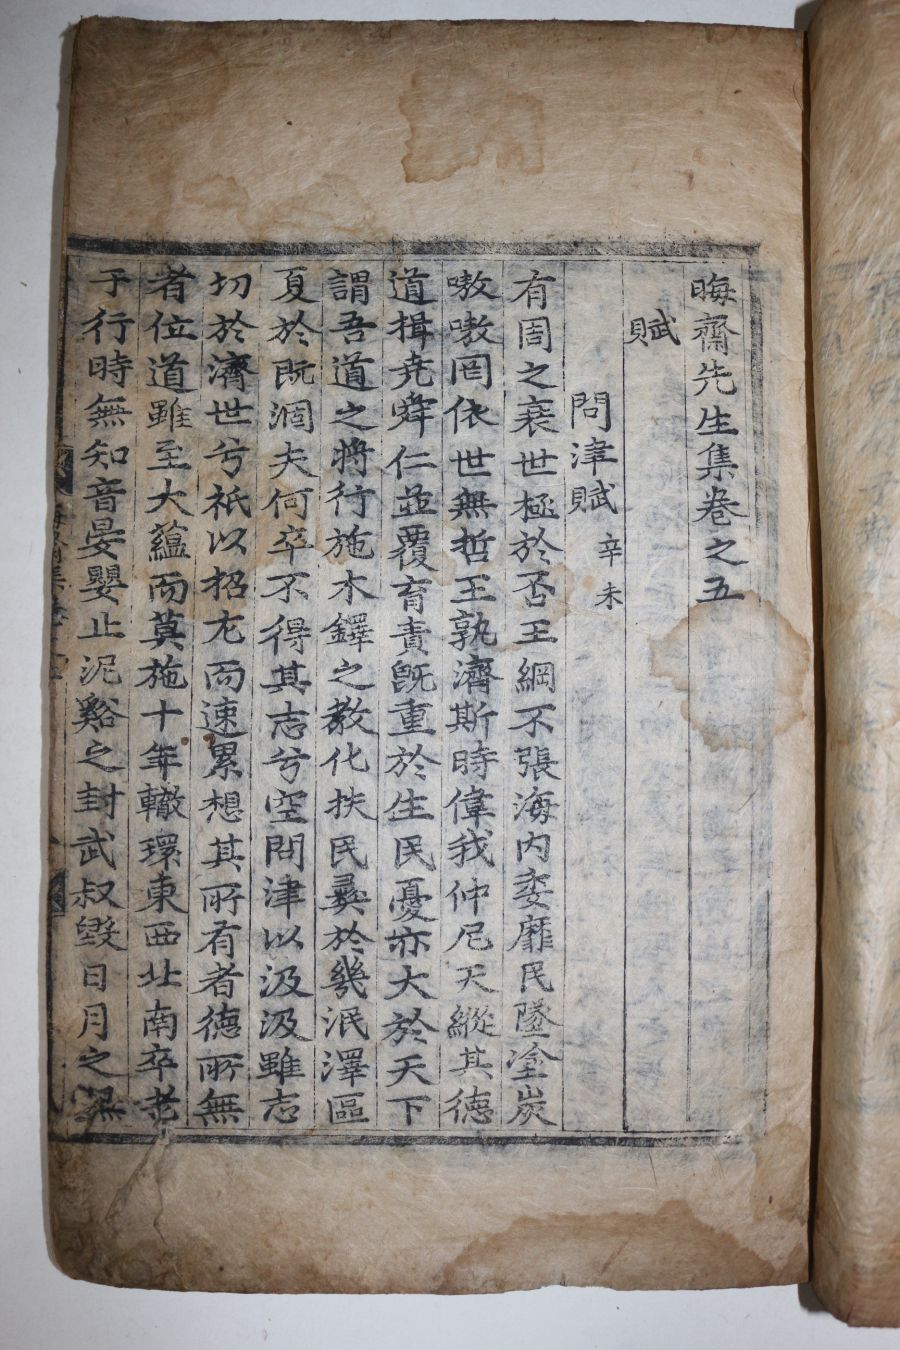 晦齋先生集卷之五
賦
問津賦 辛未
有周之衰世極於否王綱不張海內委靡民墜塗炭
嗷嗷罔依世無哲王孰濟斯時偉我仲尼天縱其德
道揖堯舜仁並覆育責旣重於生民憂亦大於天下
謂吾道之將行施木鐸之敎化扶民彝於幾泯澤區
夏於既涸夫何卒不得其志兮空問津以汲汲雖志
切於濟世兮祇以招尤而速累想其所有者德所無
者位道雖至大蘊而莫施十年轍環東西北南卒老
于行時無知音晏嬰止泥谿之封武叔毁日月之